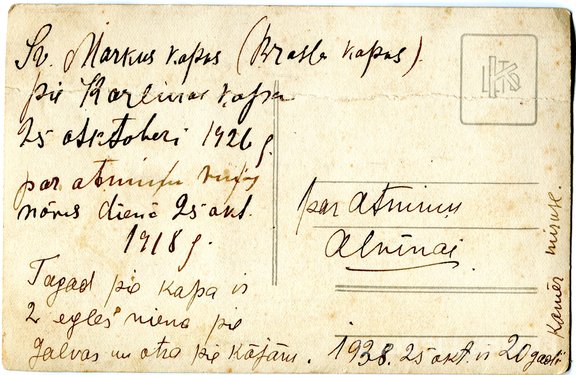 Sv. Markus kapos (Brasla kapos).
pie Karlinas kapa
25 oktoberi 1926 g.
par atmiņu viņas
nāves dienā 25 okt.
1918 g.
Tagad pie kapa ir
2 egles viena pie
galvas un otra pie kājām.
par atmiņu
Alvīnai.
1938. 25 okt. ir 20 gadi
Kamēr mirusē.